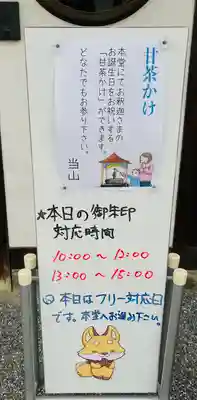 甘茶かけ
本堂にてお釈迦さまの
お誕生日をお祝いする
「甘茶かけ」ができます。
どなたでもお参り下さい。
当山
★本日の御朱印
対応時間
10:00～12:00
13:00～15:00
本日はフリー対応日
です。本堂へお進み下さい。